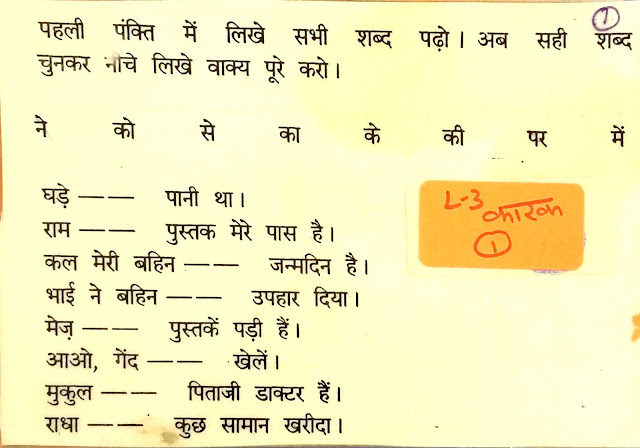 1
पहली पंक्ति में लिखे सभी शब्द पढ़ो। अब सही शब्द
चुनकर नीचे लिखे वाक्य पूरे करो।
ने को से का के की पर में
घड़े —— पानी था।
राम —— पुस्तक मेरे पास है।
कल मेरी बहिन —— जन्मदिन है।
भाई ने बहिन —— उपहार दिया।
मेज़ —— पुस्तकें पड़ी हैं।
आओ, गेंद —— खेलें।
मुकुल —— पिताजी डाक्टर हैं।
राधा —— कुछ सामान खरीदा।
L-3 कारक
1